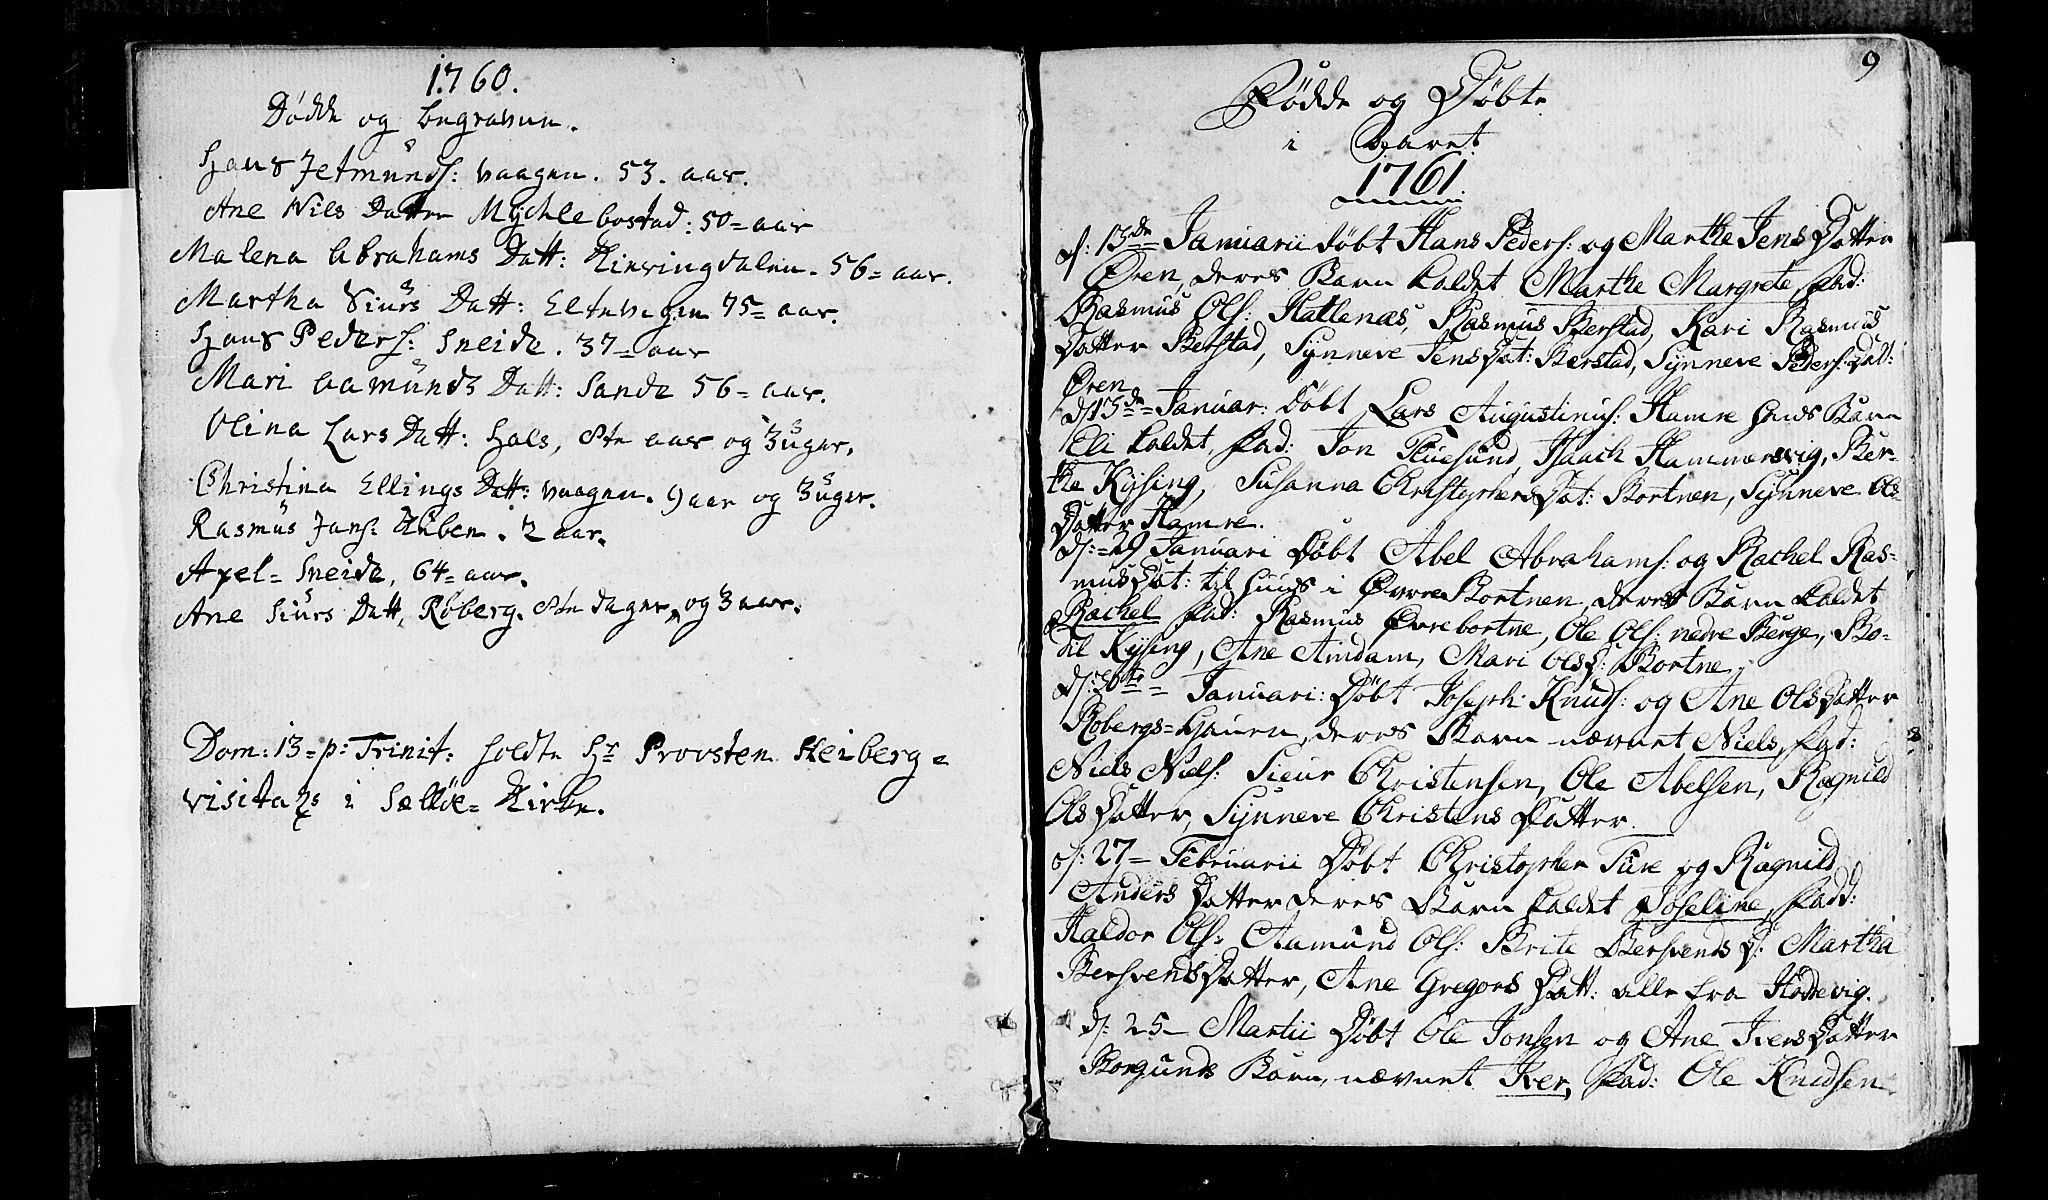 1760.
Dödde og begravne.
Hans Jetmunds: vaagen. 53. aar.
Ane Nils Datter Mychlebostad: 50= aar
Malena Abrahams Datt: Kieringdalen. 56= aar.
Martha Siurs Datt: Eltevagen 75= aar.
Hans Peders: Sneide. 37= aar
Mari Aamunds Datt: Sande 56= aar.
Olina Lars Datt: Hals, 8te aar og 3 uger.
Christina Ellings Datt: vaagen. 9 aar og 3 uger.
Rasmus Jans: Huben. 2 aar.
Axel= Sneide, 64= aar.
Ane Siurs Datt, Röberg. 8te dager, og 3 aar.
Dom: 13= p: Trinit: holdte Hr Provsten Heiberg=
visitatz i Sælløe= Kirke.
9
Födde og Döbte
i Aaret
1761.
d: 13de= Januarii döbt Hans Peders: og Marthe Jens Datter
Øren, deres Barn kaldet Marthe Margrete, fad:
Rasmus Ols: Hatlenæs, Rasmus Berstad, Kari Rasmus
Datter Berstad, Synneve Jens Dat: Berstad, Synneve Peders: Dat:
Øren
d 13de= Januar: Döbt Lars Augustinus: Hamre hends Barn
Eli kaldet, fad: Jon Tuesund, Isaach Hammersvig, Ber-
the Kysing, Susanna Christophers Dat: Bortnen, Synneve Ols
Datter Hamre.
d:= 29 Januari Döbt Abel Abrahams: og Rachel Ras-
mus Dat: til huus i Øvre Bortnen, deres Barn kaldet
Rachel fad: Rasmus Øvrebortne, Ole Ols: nedre Berge, Bo-
til Kysing, Ane Amdam, Mari Ols D: Bortne.
d: 30te= Januari: Döbt Joseph Knuds: og Ane Ols Datter
Robergs= Hauen, deres Barn nævnet Niels, fad:
Niels Niels: Sieur Christensen, Ole Abelsen, Ragnild
Ols Datter, Synneve Christens Datter.
d: 27= Februarii Döbt Christopher Ture og Ragnild
Anders Datter deres Barn kaldet Joseline, fadd:
Haldor Ols: Aamund Ols: Brite Bersvends D: Martha
Bersvends Datter, Ane Gregors Datt: alle fra Hoddevig.
d: 25= Martii Döbt Ole Jonsen og Ane Ivers Datter
Borgunds Barn, nævnet Iver, fad: Ole Knudsen